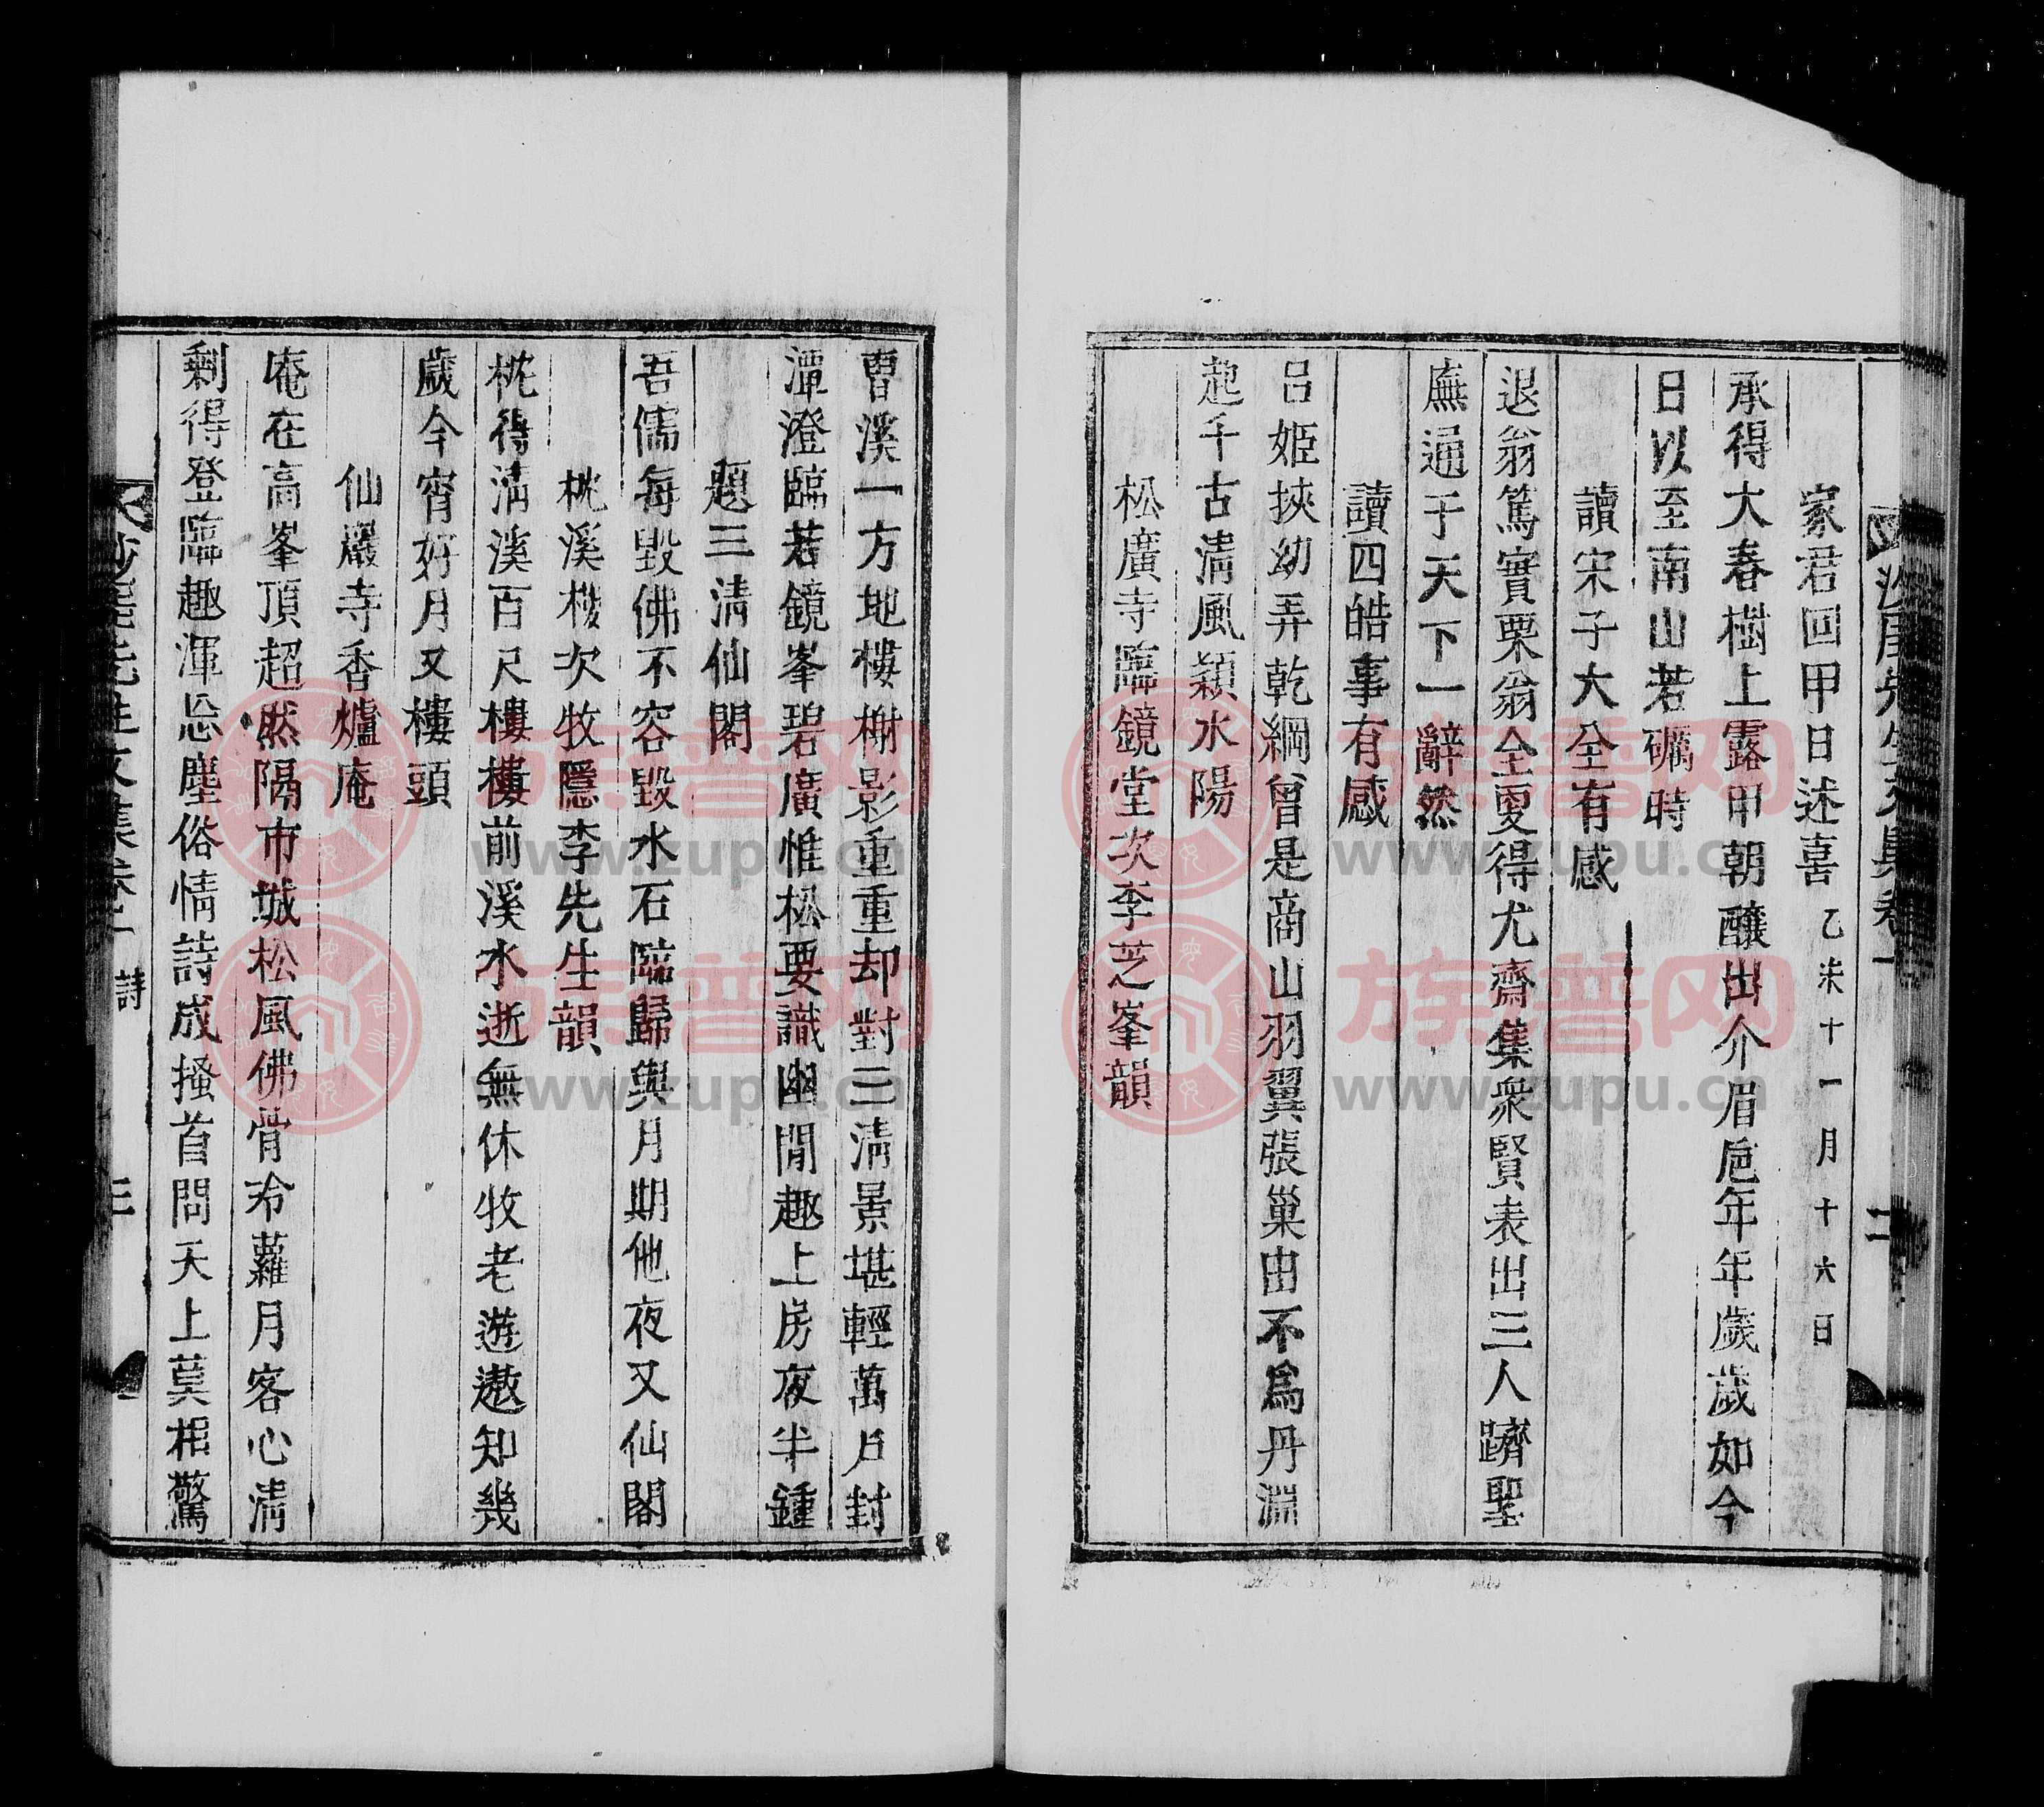 家君回甲日述喜 乙未十一月十六日
承得大春樹上露甲朝釀出介眉巵年年歲歲如今
日以至南山若礪時
讀宋子大全有感
退翁篤實栗翁全更得尤齋集衆賢表出三人躋聖
廡通于天下一辭然
讀四皓事有感
呂姬挾幼弄乾綱曾是商山羽翼張巢由不爲丹淵
起千古淸風潁水陽
松廣寺臨鏡堂次李芝峯韻
曹溪一方地樓榭影重重却對三淸景堪輕萬戶封
潭澄臨若鏡峯碧廣惟松要識幽閒趣上房夜半鍾
題三淸仙閣
吾儒每毀佛不容毀水石臨歸與月期他夜又仙閣
枕溪樓次牧隱李先生韻
枕得淸溪百尺樓樓前溪水逝無休牧老遊遨知幾
歲今宵好月又樓頭
仙巖寺香爐庵
庵在高峯頂超然隔市城松風佛骨冷蘿月客心淸
剩得登臨趣渾忘塵俗情詩成搔首問天上莫相驚
先生文集卷一 詩 三
族谱网
www.zupu.cn
族谱网
www.zupu.cn
族谱网
www.zupu.cn
族谱网
www.zupu.cn